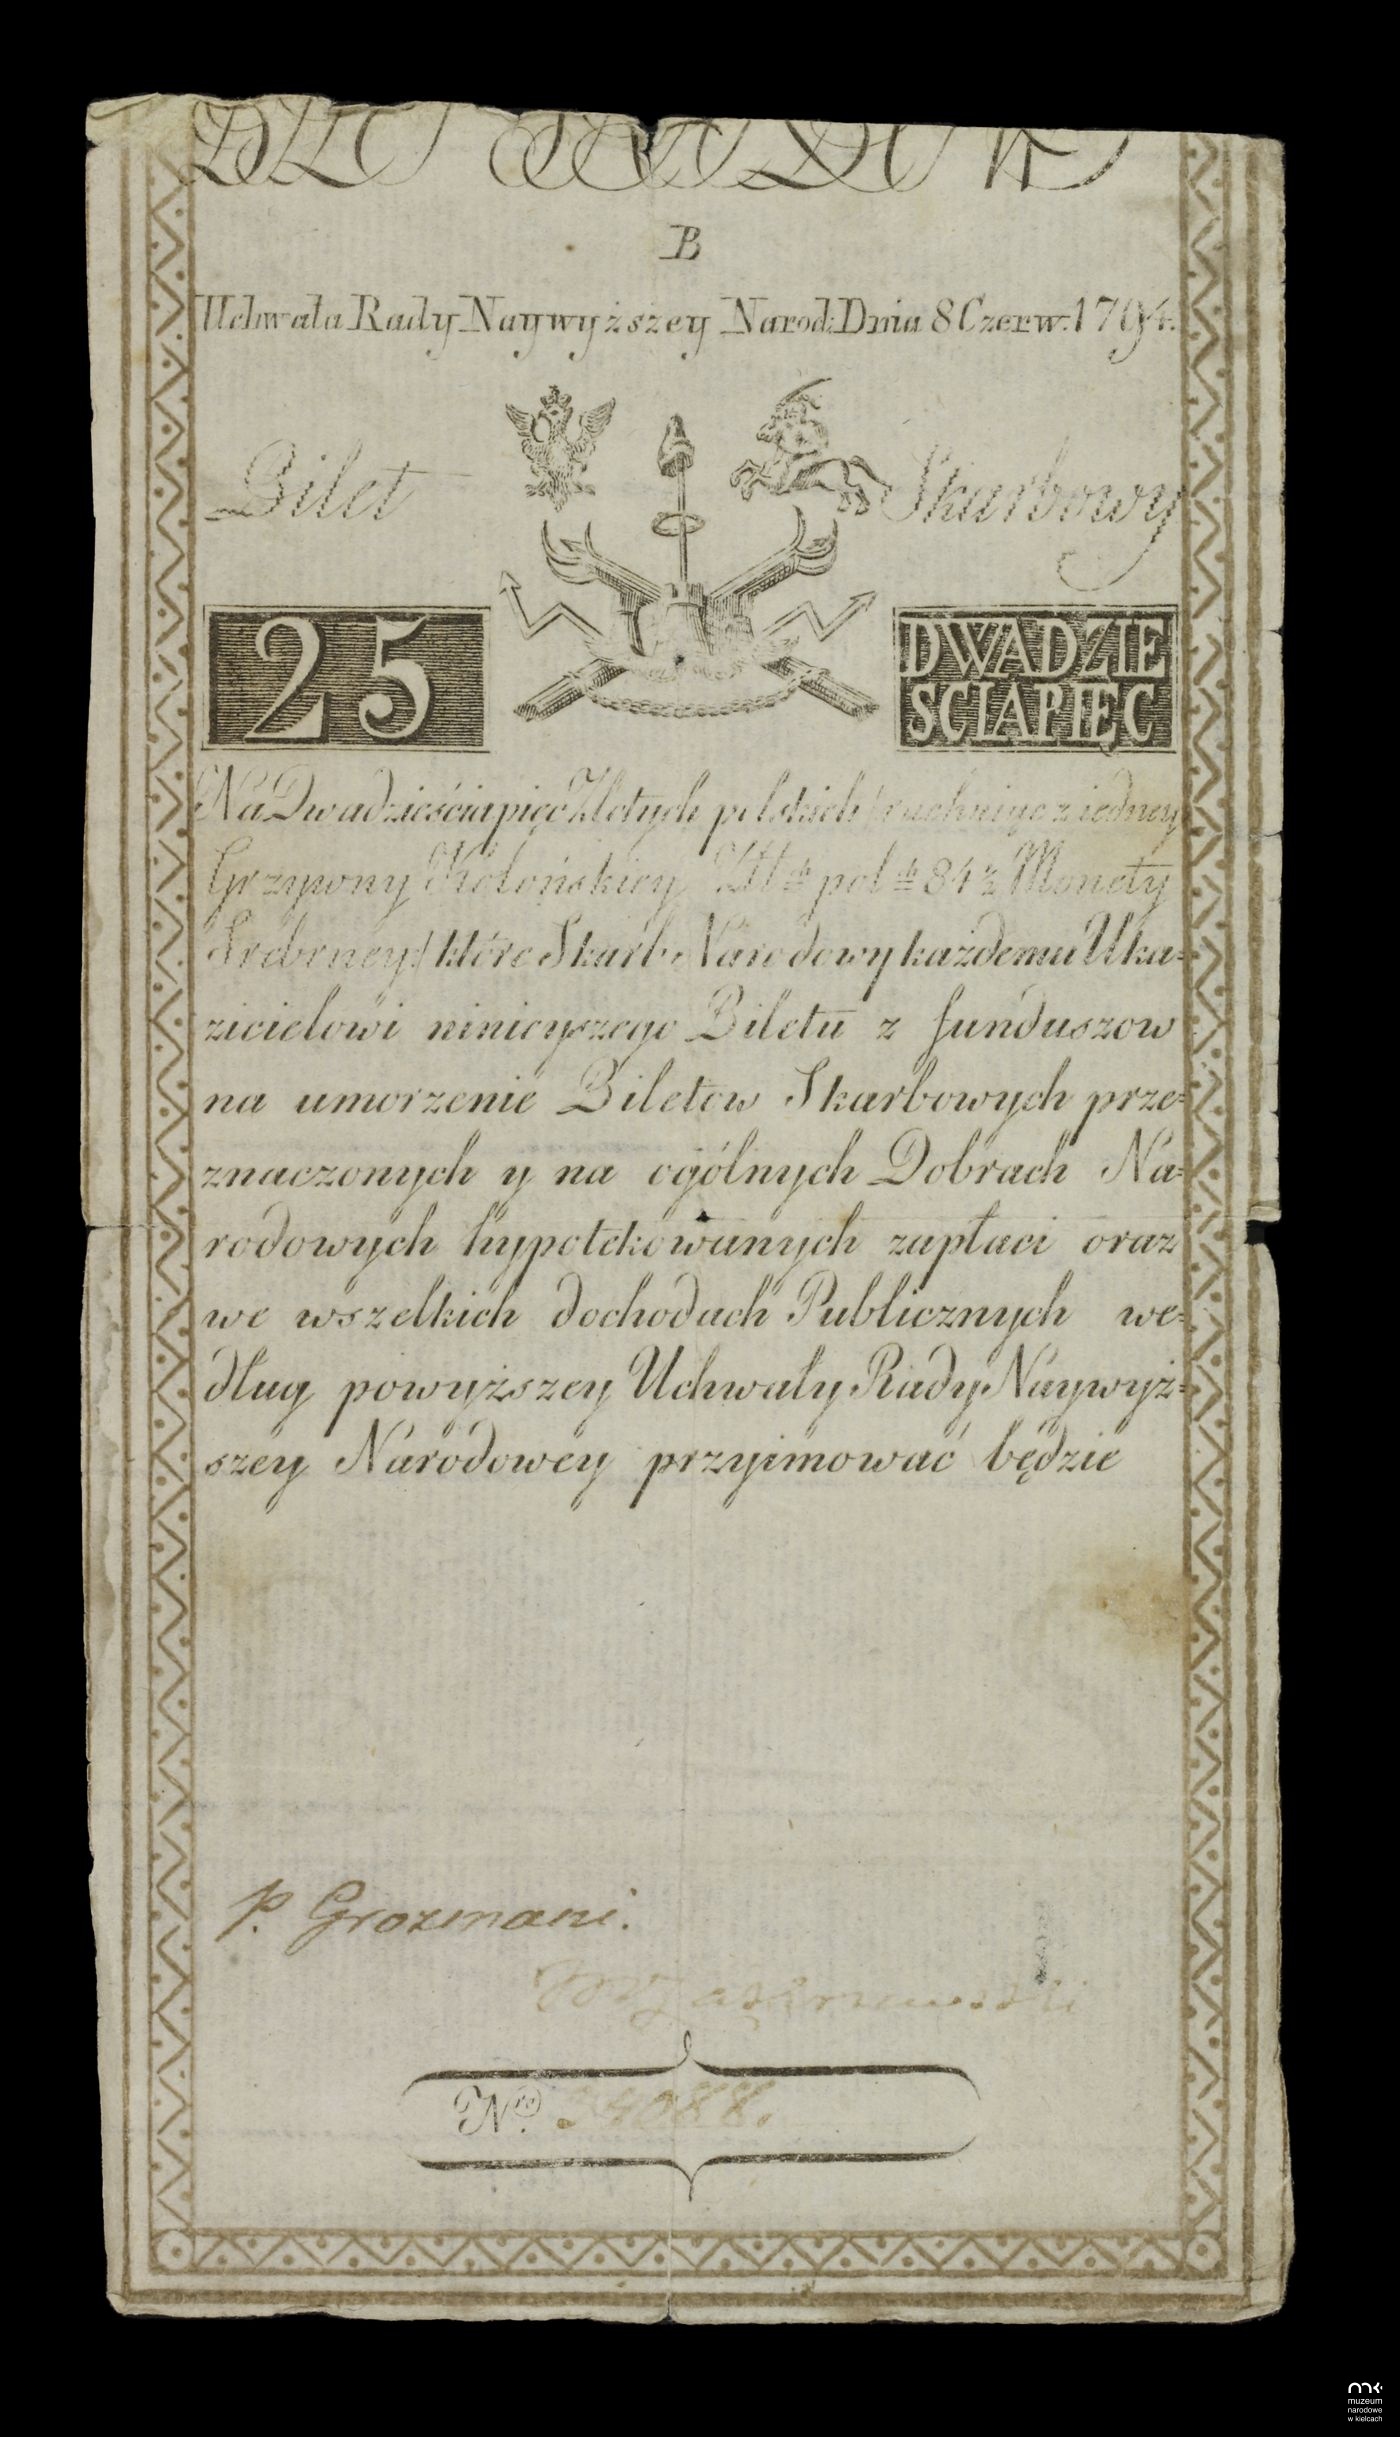 B
Uchwała Rady Naywyższey Narod: Dnia 8 Czerw. 1794.
Bilet Skarbowy
25 DWADZIE
SCIAPIĘC
Na Dwadzieściapięć Złotych polskich (rachuiąc z iedney
Grzywny Kolońskiey Złł: ch pol: ch 84½ Monety
Srebrney) które Skarb Narodowy każdemu Uka=
zicielowi ninieyszego Biletu z funduszow
na umorzenie Biletow Skarbowych prze=
znaczonych y na ogólnych Dobrach Na=
rodowych hypotekowanych zapłaci oraz
we wszelkich dochodach Publicznych we=
dług powyższey Uchwały Rady Naywyż=
szey Narodowey przyimować będzie
p. Grozmani.
Nro 34088.
muzeum
narodowe
w kielcach